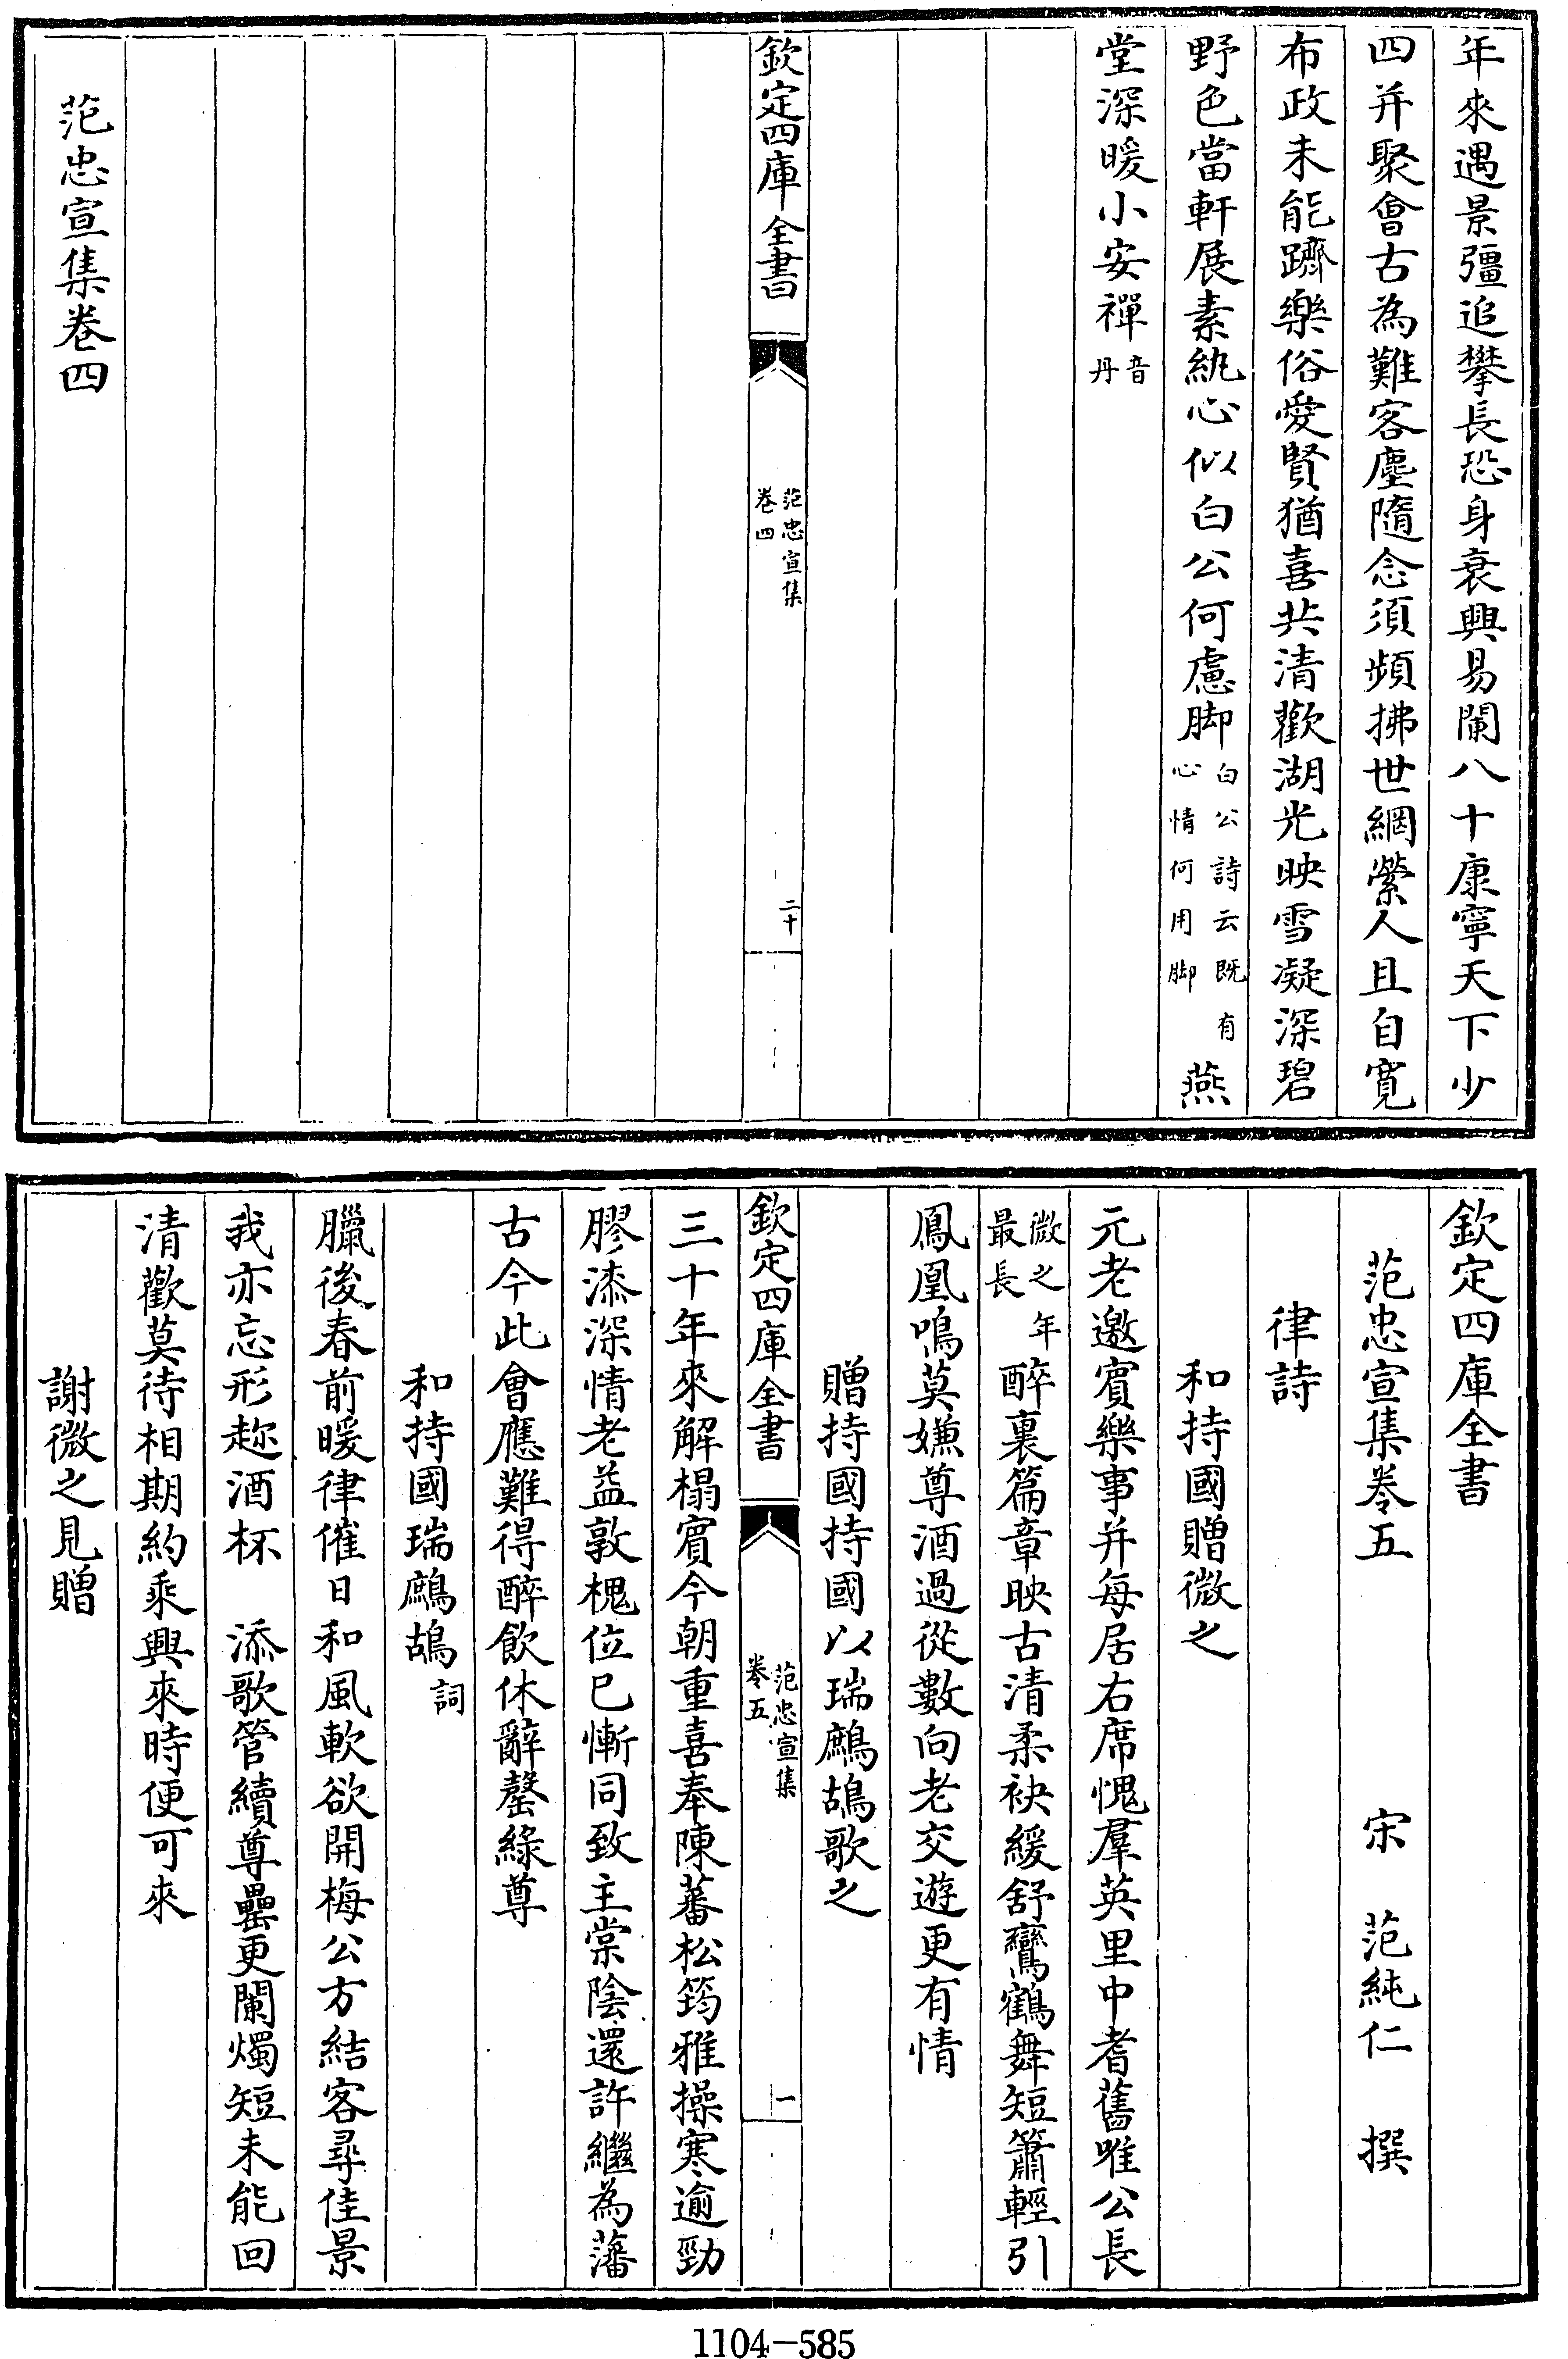 年來遇景彊追攀長恐身衰興易闌八十康寧天下少
四并聚會古為難客塵隨念須頻拂世網縈人且自寬
布政未能躋樂俗愛賢猶喜共清歡湖光映雪凝深碧
野色當軒展素紈心似白公何慮脚白公詩云既有心情何用脚燕
堂深暖小安禪音丹
欽定四庫全書
范忠宣集
卷四
二十
范忠宣集卷四
欽定四庫全書
范忠宣集卷五
宋 范純仁 撰
律詩
和持國贈微之
元老邀賓樂事并每居右席愧羣英里中耆舊唯公長
微之年最長醉裏篇章映古清柔袂緩舒鸞鶴舞短簫輕引
鳳凰鳴莫嫌尊酒過從數向老交遊更有情
贈持國持國以瑞鷓鴣歌之
欽定四庫全書
范忠宣集
卷五
一
三十年來解榻賓今朝重喜奉陳蕃松筠雅操寒逾勁
膠漆深情老益敦槐位已慚同致主棠陰還許繼為藩
古今此會應難得醉飲休辭罄綠尊
和持國瑞鷓鴣詞
臘後春前暖律催日和風軟欲開梅公方結客尋佳景
我亦忘形趂酒杯 添歌管續尊罍更闌燭短未能回
清歡莫待相期約乘興來時便可來
謝微之見贈
1104-585